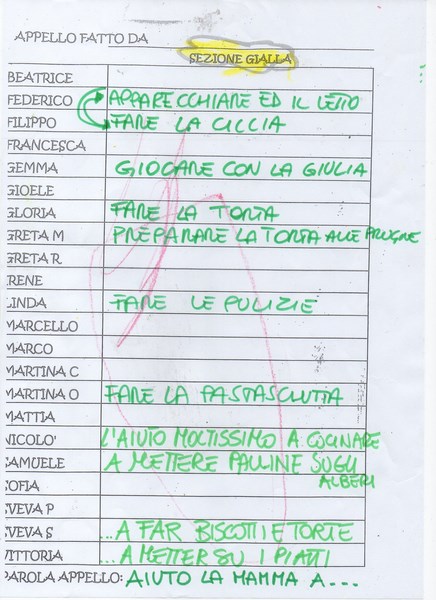 APPELLO FATTO DA
SEZIONE GIALLA
BEATRICE
FEDERICO APPARECCHIARE ED IL LETTO
FILIPPO FARE LA CICCIA
FRANCESCA
GEMMA GIOCARE CON LA GIULIA
GIOELE
GLORIA FARE LA TORTA
GRETA M PREPARARE LA TORTA ALLE PRUGNE
GRETA R
IRENE
LINDA FARE LE PULIZIE
MARCELLO
MARCO
MARTINA C
MARTINA O FARE LA PASTASCIUTTA
MATTIA
NICOLO' L'AIUTO MOLTISSIMO A CUCINARE
SAMUELE A METTERE PALLINE SUGLI
ALBERI
SOFIA
SVEVA P
SVEVA S ...A FAR BISCOTTI E TORTE
VITTORIA ...A METTER SU I PIATTI
PAROLA APPELLO: AIUTO LA MAMMA A...